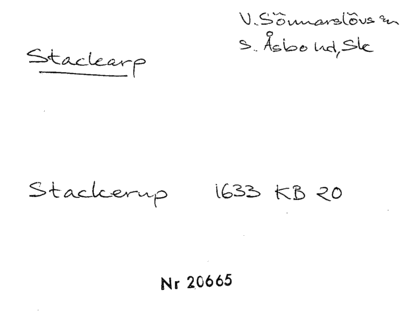 V. Sönnarslövs sn
Stackarp
S. Åsbo hd, Sk
Stackerup 1633 KB 20
Nr 20665